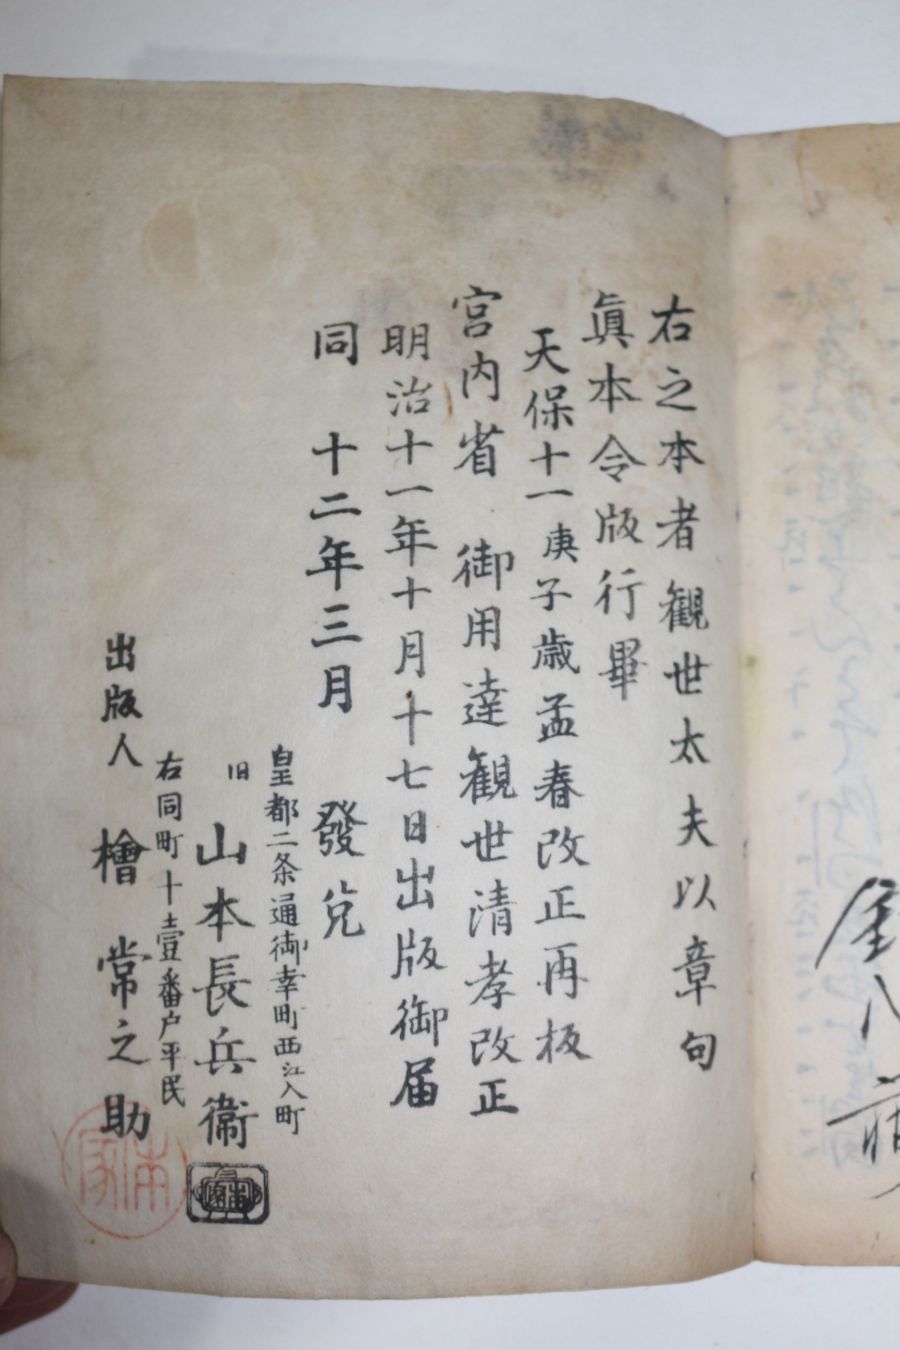 右之本者観世太夫以章句
眞本令版行畢
天保十一庚子歳孟春改正再板
宮内省 御用達観世清孝改正
明治十一年十月十七日出版御届
同 十二年三月 發兌
皇都二条通御幸町西江入町
旧 山本長兵衞
右同町十壹番户平民
出版人 檜 常之助